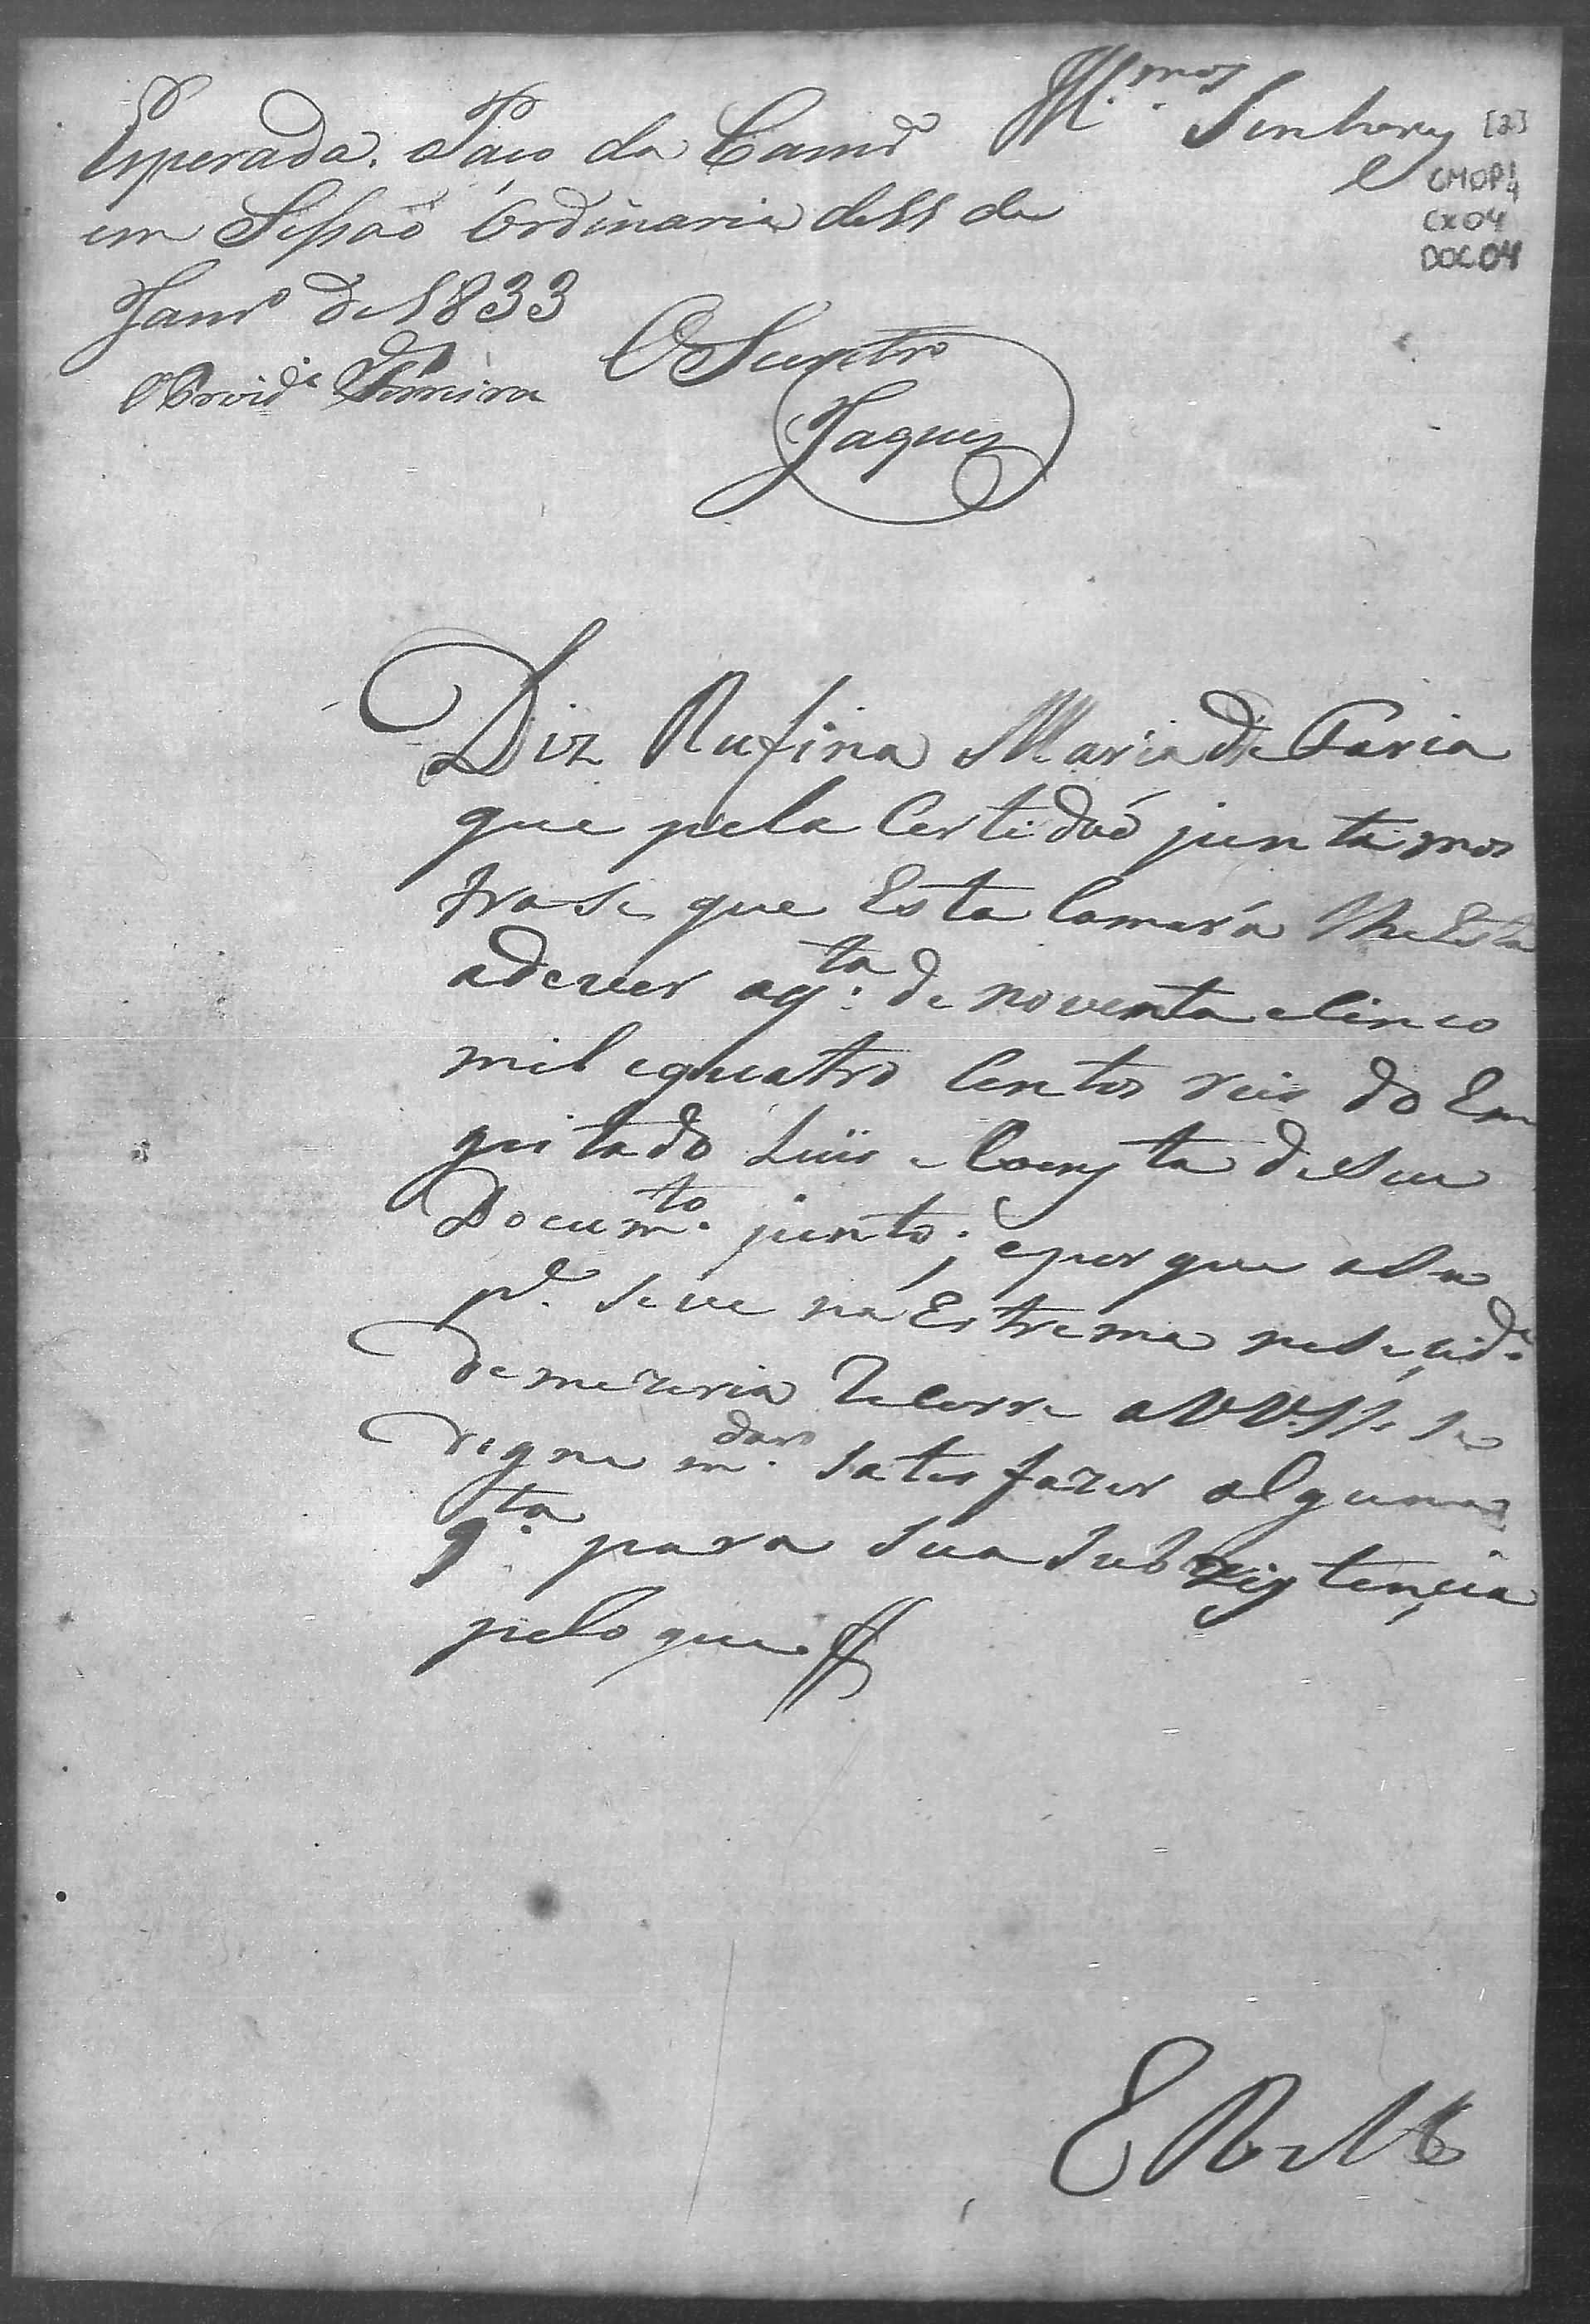 Esperada. Paço da Camr.ᵃ
em Sessaõ Ordinaria de 11 de
Janr.º de 1833
O Secretr.º
Ferreira
Jaques
Ill.ᵐᵒˢ Senhores
[2]
CMOP 1/4
CX04
DOC04
Diz Rufina Maria de Faria
que pela Certidaõ junta mos
trase que Esta Camara lhe Esta
adever aq.ᵗᵃ de noventa eCinco
mil equatro Centos reis do En
geitado Luis e Consta deseu
Docum.ᵗᵒ junto; eporque a Su
p.ᵉ seve na Estrema nesecid.ᵉ
de mezeria Recorre a VV.SS. Se
digne m.ᵈᵃʳ satesfazer alguma
q.ᵗᵃ para sua subzistençia
pelo que
E R M.ᶜᵉ